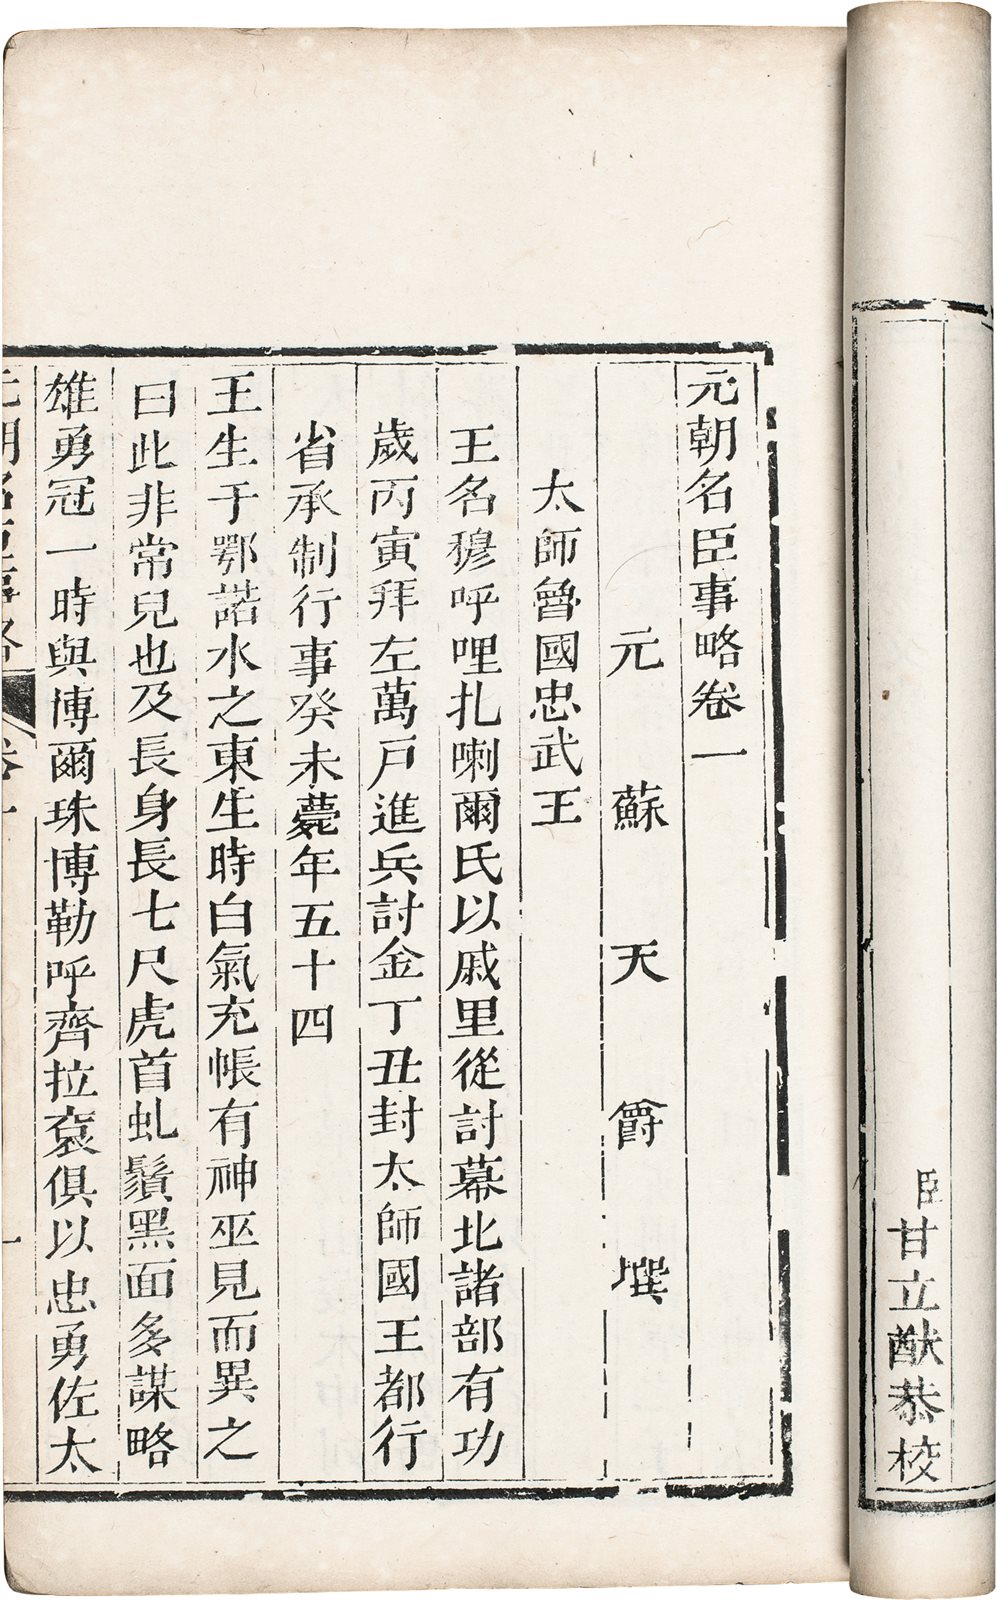 臣甘立猷恭校
元朝名臣事略卷一
元蘇天爵撰
太師魯國忠武王
王名穆呼哩扎喇爾氏以戚里從討幕北諸部有功
歲丙寅拜左萬戸進兵討金丁丑封太師國王都行
省承制行事癸未薨年五十四
王生于鄂諾水之東生時白氣充帳有神巫見而異之
曰此非常兒也及長身長七尺虎首虬鬚黑面多謀略
雄勇冠一時與博爾珠博勒呼齊拉袞俱以忠勇佐太
元朝名臣事略 卷一 一